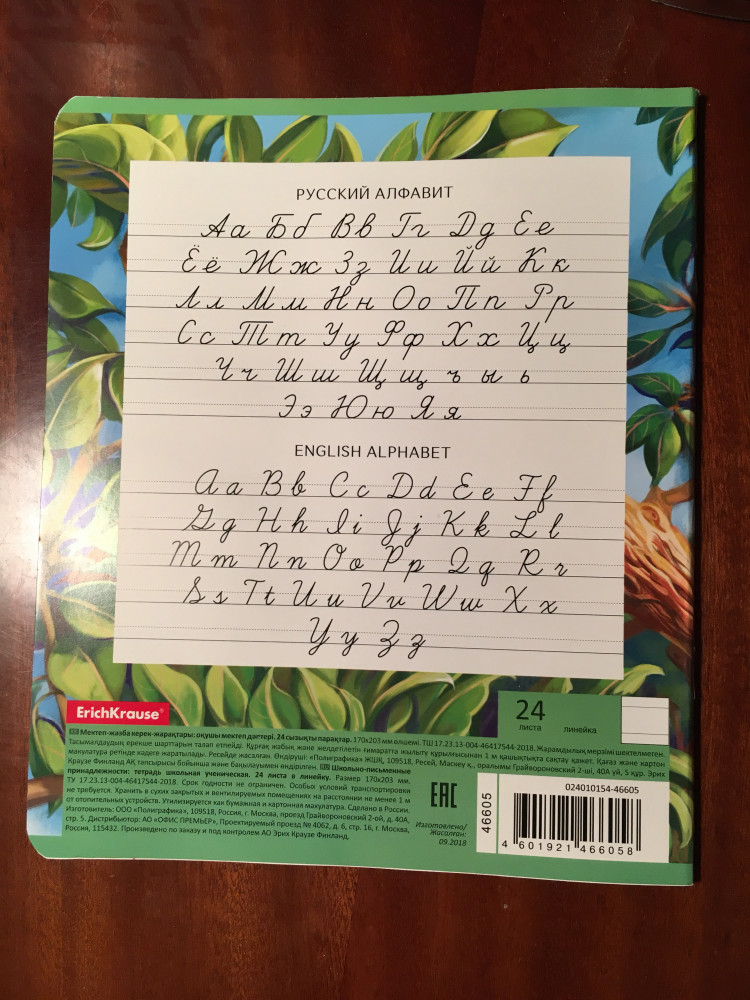 РУССКИЙ АЛФАВИТ
Аа Бб Вв Гг Дд Ее
Ёё Жж Зз Ии Йй Кк
Лл Мм Нн Оо Пп Рр
Сс Тт Уу Фф Хх Цц
Чч Шш Щщ ъ ы ь
Ээ Юю Яя
ENGLISH ALPHABET
Aa Bb Cc Dd Ee Ff
Gg Hh Ii Jj Kk Ll
Mm Nn Oo Pp Qq Rr
Ss Tt Uu Vv Ww Xx
Yy Zz
ErichKrause®
24
листа линейка
KZ Мектеп-жазба керек-жарақтары: оқушы мектеп дәптері. 24 сызықты парақтар. 170х203 мм өлшемі. ТШ 17.23.13-004-46417544-2018. Жарамдылық мерзімі шектелмеген.
Тасымалдаудың ерекше шарттарын талап етпейді. Құрғақ жабық және желдетілетін ғимаратта жылыту құрылғысынан 1 м қашықтықта сақтау қажет. Қағаз және картон
макулатура ретінде кәдеге жаратылады. Ресейде жасалған. Өндіруші: «Полиграфика» ЖШҚ, 109518, Ресей, Мәскеу қ., оралымы Грайвороновский 2-ші, 40А үй, 5 құр. Эрих
Краузе Финланд АҚ тапсырысы бойынша және бақылауымен өндірілген. RU Школьно-письменные
принадлежности: тетрадь школьная ученическая. 24 листа в линейку. Размер 170х203 мм.
ТУ 17.23.13-004-46417544-2018. Срок годности не ограничен. Особых условий транспортировки
не требуется. Хранить в сухих закрытых и вентилируемых помещениях на расстоянии не менее 1 м
от отопительных устройств. Утилизируется как бумажная и картонная макулатура. Сделано в России.
Изготовитель: ООО «Полиграфика», 109518, Россия, г. Москва, проезд Грайвороновский 2-ой, д. 40А,
стр. 5. Дистрибьютор: АО «ОФИС ПРЕМЬЕР», Проектируемый проезд № 4062, д. 6, стр. 16, г. Москва,
Россия, 115432. Произведено по заказу и под контролем АО Эрих Краузе Финланд.
ЕАС
Изготовлено/
Жасалған:
09.2018
46605
024010154-46605
4 601921 466058